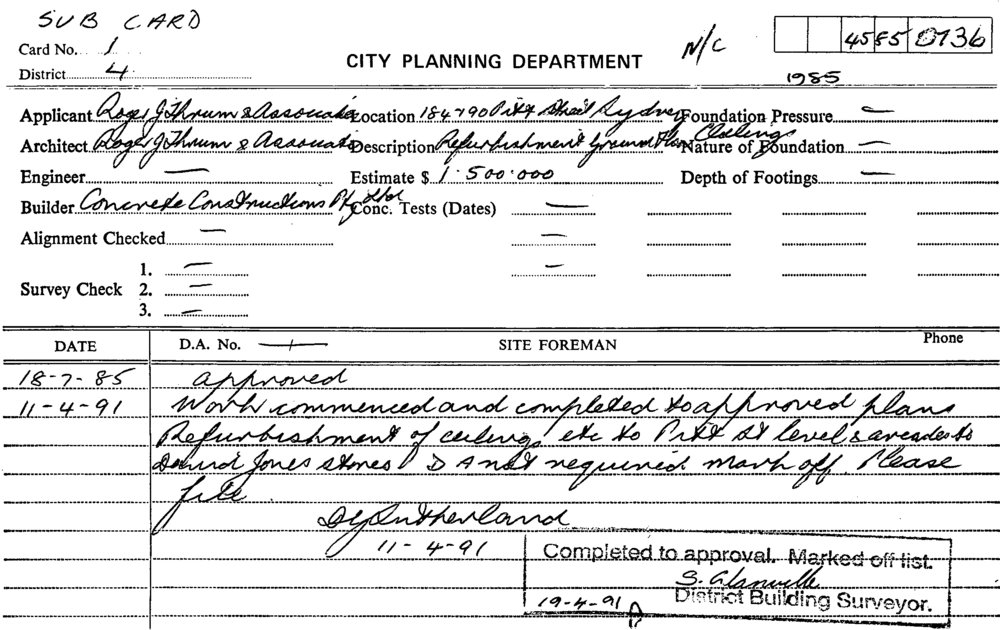 SUB CARD
Card No. 1
District 4
CITY PLANNING DEPARTMENT
N/C
4585 0736
1985
Applicant Roger J Thrum & Associates Location 184-190 Pitt Street Sydney Foundation Pressure —
Architect Roger J Thrum & Associates Description Refurbishment Ground Floor Ceilings Nature of Foundation —
Engineer — Estimate $ 1.500.000 Depth of Footings —
Builder Concrete Constructions Pty Ltd Conc. Tests (Dates) —
Alignment Checked — —
1. — —
Survey Check 2. —
3. —
DATE D.A. No. — SITE FOREMAN Phone
18-7-85 approved
11-4-91 Work commenced and completed to approved plans
Refurbishment of ceilings etc to Pitt St level & arcades to
David Jones stores D A not required. Mark off. Please
file
Sutherland
11-4-91
Completed to approval. Marked off list.
S.
19-4-91 District Building Surveyor.